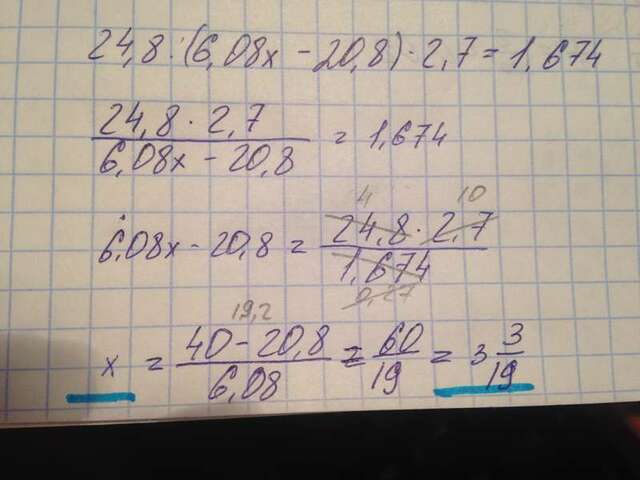 24,8 : (6,08x - 20,8) · 2,7 = 1,674
24,8 · 2,7 / 6,08x - 20,8 = 1,674
4 10
6,08x - 20,8 = 24,8 · 2,7 / 1,674
0,27
19,2
x = 40 - 20,8 / 6,08 = 60 / 19 = 3 3/19